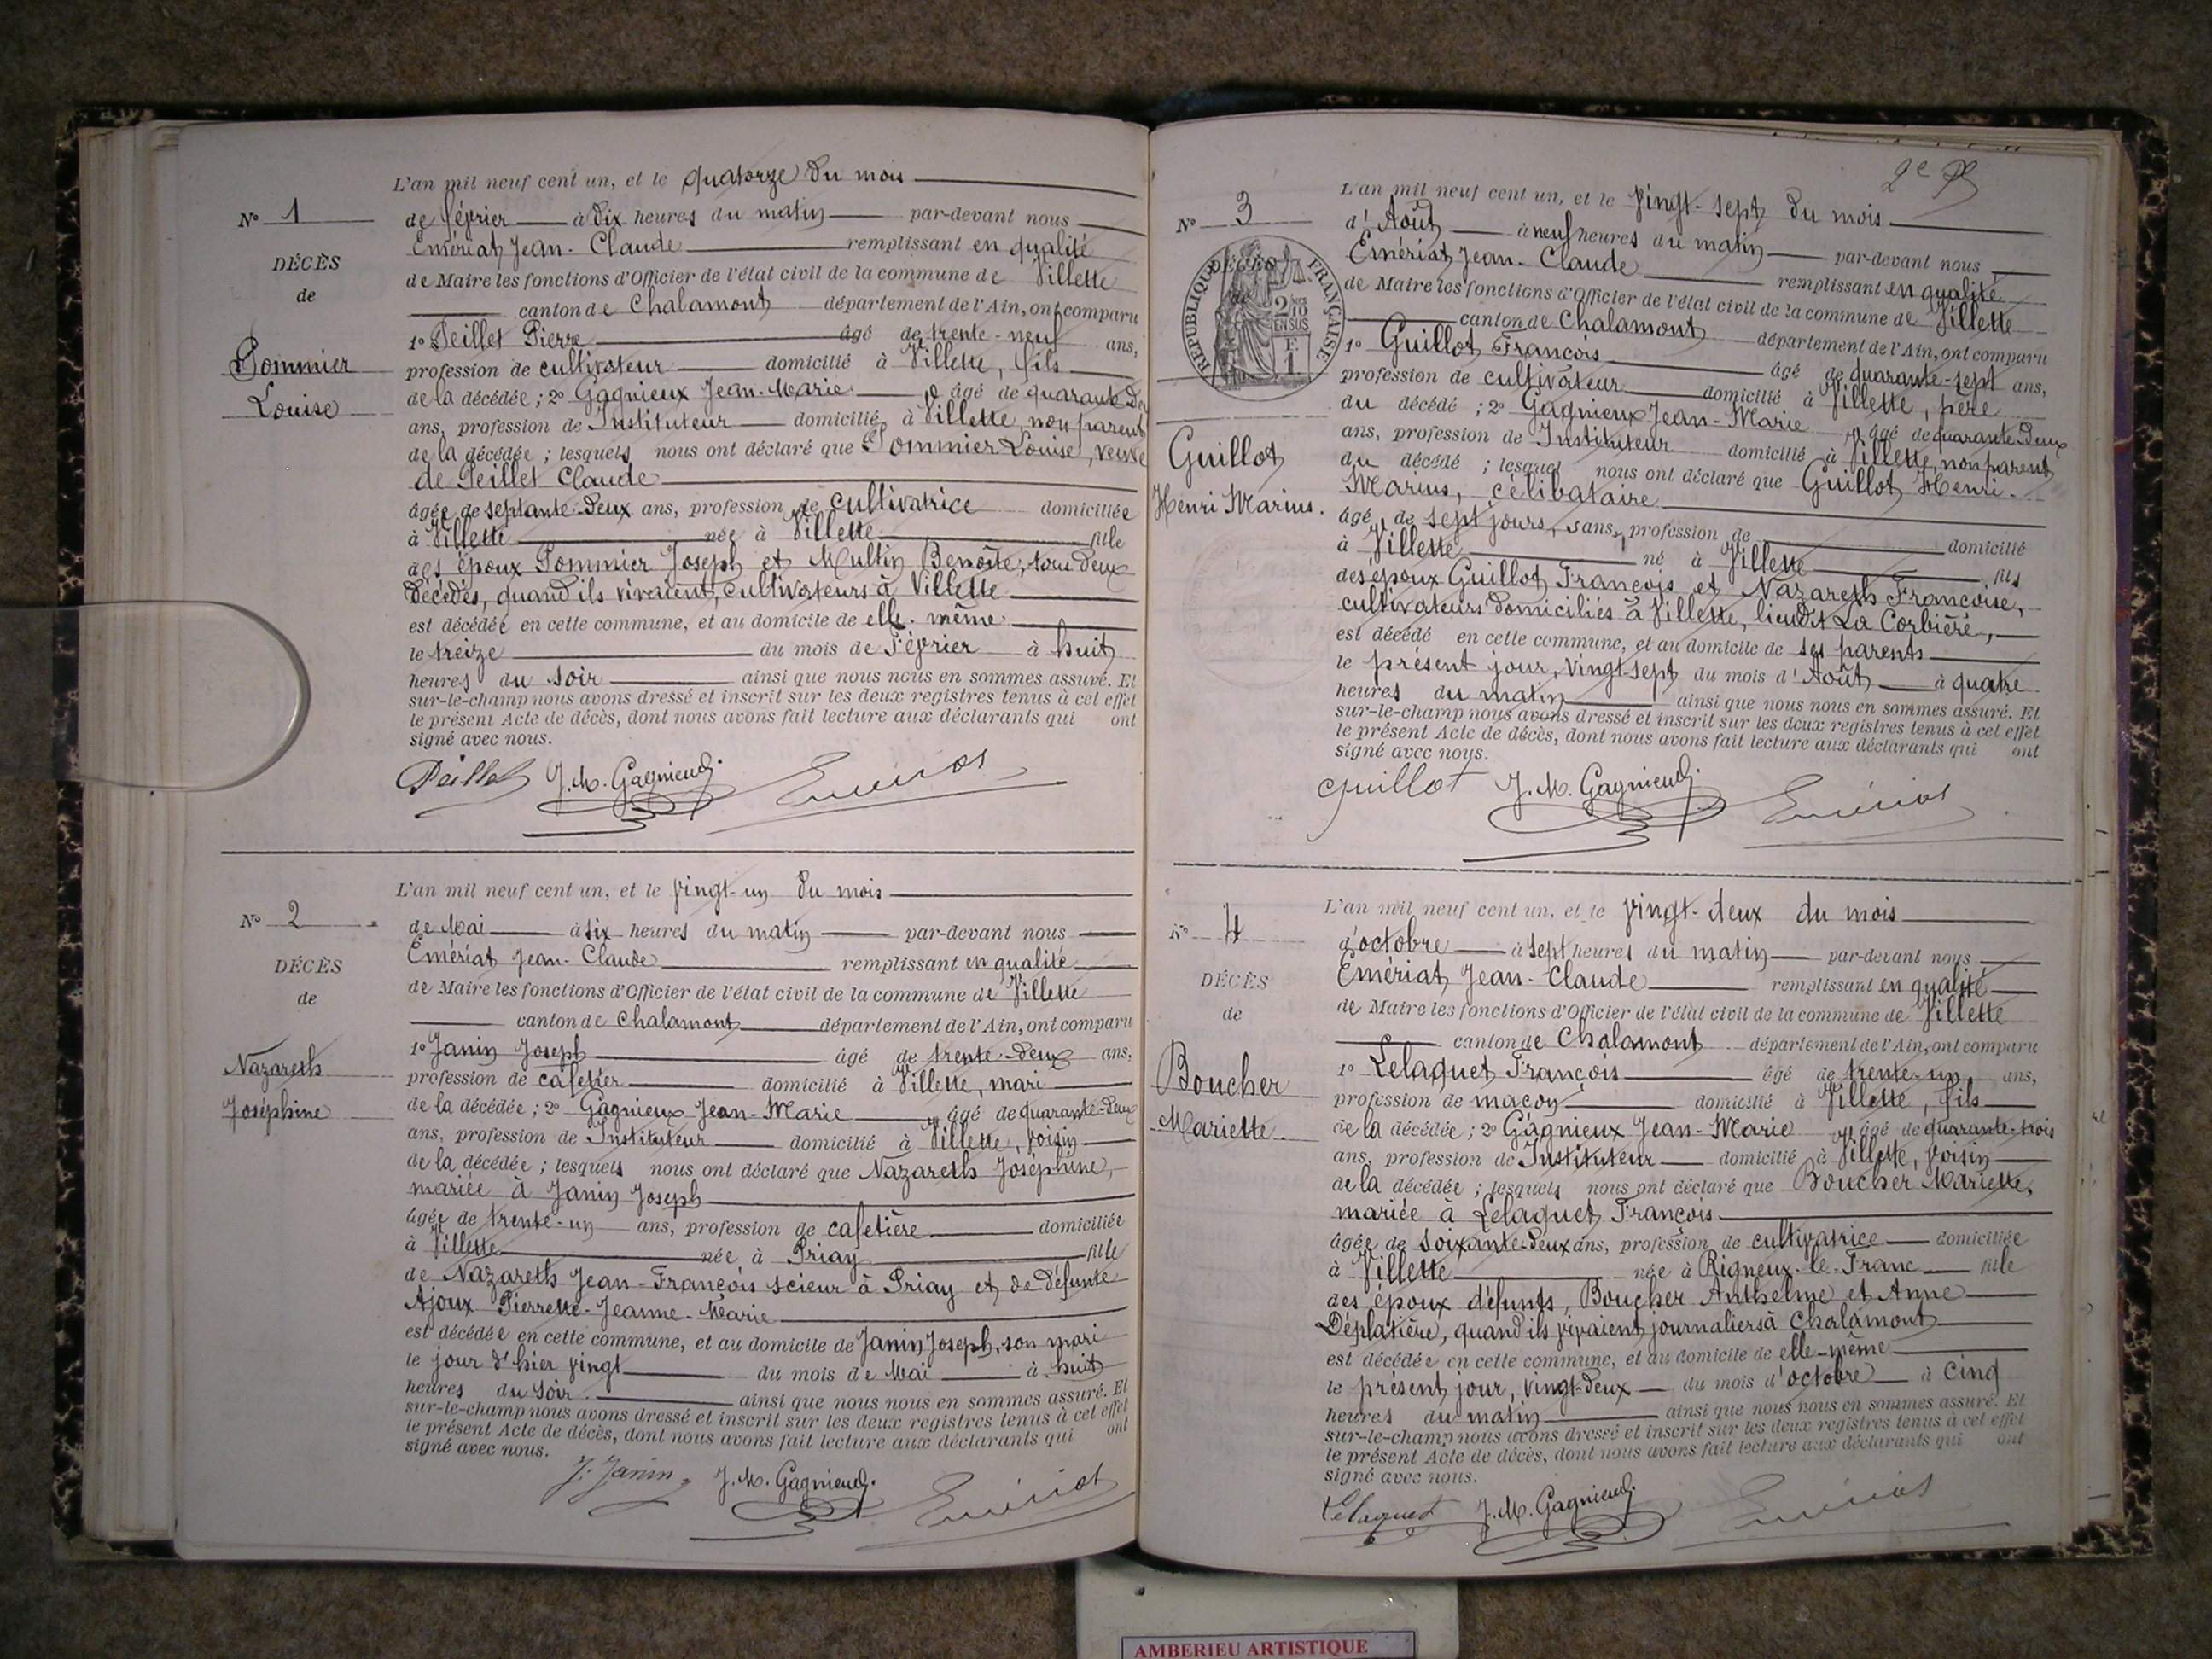 L'an mil neuf cent un, et le quatorze du mois
N° 1
de février à dix heures du matin par-devant nous
Emériat Jean-Claude remplissant en qualité
DÉCÈS
de Maire les fonctions d'Officier de l'état civil de la commune de Villette
de
canton de Chalamont département de l'Ain, ont comparu
1° Peillet Pierre âgé de trente-neuf ans,
Pommier
profession de cultivateur domicilié à Villette, fils
Louise
de la décédée ; 2° Gagnieux Jean-Marie âgé de quarante-deux
ans, profession de Instituteur domicilié à Villette, non parent
de la décédée ; lesquels nous ont déclaré que Pommier Louise, veuve
de Peillet Claude
âgée de septante-deux ans, profession de cultivatrice domiciliée
à Villette née à Villette fille
des époux Pommier Joseph et Multin Benoîte, tous deux
décédés, quand ils vivaient, cultivateurs à Villette
est décédée en cette commune, et au domicile de elle-même
le treize du mois de Février à huit
heures du soir ainsi que nous nous en sommes assuré. Et
sur-le-champ nous avons dressé et inscrit sur les deux registres tenus à cet effet
le présent Acte de décès, dont nous avons fait lecture aux déclarants qui ont
signé avec nous.
Peillet J. M. Gagnieux Emériat
L'an mil neuf cent un, et le vingt-un du mois
N° 2
de Mai à six heures du matin par-devant nous
Emériat Jean-Claude remplissant en qualité
DÉCÈS
de Maire les fonctions d'Officier de l'état civil de la commune de Villette
de
canton de Chalamont département de l'Ain, ont comparu
1° Janin Joseph âgé de trente-deux ans,
Nazareth
profession de cafetier domicilié à Villette, mari
Joséphine
de la décédée ; 2° Gagnieux Jean-Marie âgé de quarante-deux
ans, profession de Instituteur domicilié à Villette, voisin
de la décédée ; lesquels nous ont déclaré que Nazareth Joséphine,
mariée à Janin Joseph
âgée de trente-un ans, profession de cafetière domiciliée
à Villette née à Priay fille
de Nazareth Jean-François scieur à Priay et de défunte
Ajoux Pierrette-Jeanne-Marie
est décédée en cette commune, et au domicile de Janin Joseph, son mari
le jour d'hier vingt du mois de Mai à huit
heures du soir ainsi que nous nous en sommes assuré. Et
sur-le-champ nous avons dressé et inscrit sur les deux registres tenus à cet effet
le présent Acte de décès, dont nous avons fait lecture aux déclarants qui ont
signé avec nous.
J. Janin J. M. Gagnieux Emériat
2e
L'an mil neuf cent un, et le vingt-sept du mois
N° 3
d'Août à neuf heures du matin par-devant nous
Emériat Jean-Claude remplissant en qualité
DÉCÈS
de
RÉPUBLIQUE FRANÇAISE
2/10 EN SUS
F. 1
de Maire les fonctions d'Officier de l'état civil de la commune de Villette
canton de Chalamont département de l'Ain, ont comparu
1° Guillot François âgé de quarante-sept ans,
profession de cultivateur domicilié à Villette, père
du décédé ; 2° Gagnieux Jean-Marie âgé de quarante-deux
ans, profession de Instituteur domicilié à Villette, non parent
Guillot
du décédé ; lesquel nous ont déclaré que Guillot Henri-
Henri Marius.
Marius, célibataire
âgé de sept jours, sans profession de domicilié
à Villette né à Villette fils
des époux Guillot François et Nazareth Françoise,
cultivateurs domiciliés à Villette, lieudit La Corbière,
est décédé en cette commune, et au domicile de ses parents
le présent jour, vingt-sept du mois d'Août à quatre
heures du matin ainsi que nous nous en sommes assuré. Et
sur-le-champ nous avons dressé et inscrit sur les deux registres tenus à cet effet
le présent Acte de décès, dont nous avons fait lecture aux déclarants qui ont
signé avec nous.
Guillot J. M. Gagnieux Emériat
L'an mil neuf cent un, et le vingt-deux du mois
N° 4
d'octobre à sept heures du matin par-devant nous
Emériat Jean-Claude remplissant en qualité
DÉCÈS
de Maire les fonctions d'Officier de l'état civil de la commune de Villette
de
canton de Chalamont département de l'Ain, ont comparu
1° Lelaquet François âgé de trente-un ans,
Boucher
profession de maçon domicilié à Villette, fils
Mariette
de la décédée ; 2° Gagnieux Jean-Marie âgé de quarante-trois
ans, profession de Instituteur domicilié à Villette, voisin
de la décédée ; lesquels nous ont déclaré que Boucher Mariette,
mariée à Lelaquet François
âgée de soixante-deux ans, profession de cultivatrice domiciliée
à Villette née à Rigneux-le-Franc fille
des époux défunts, Boucher Anthelme et Anne
Déplatière, quand ils vivaient journaliers à Chalamont
est décédée en cette commune, et au domicile de elle-même
le présent jour, vingt-deux du mois d'octobre à cinq
heures du matin ainsi que nous nous en sommes assuré. Et
sur-le-champ nous avons dressé et inscrit sur les deux registres tenus à cet effet
le présent Acte de décès, dont nous avons fait lecture aux déclarants qui ont
signé avec nous.
Lelaquet J. M. Gagnieux Emériat
AMBERIEU ARTISTIQUE